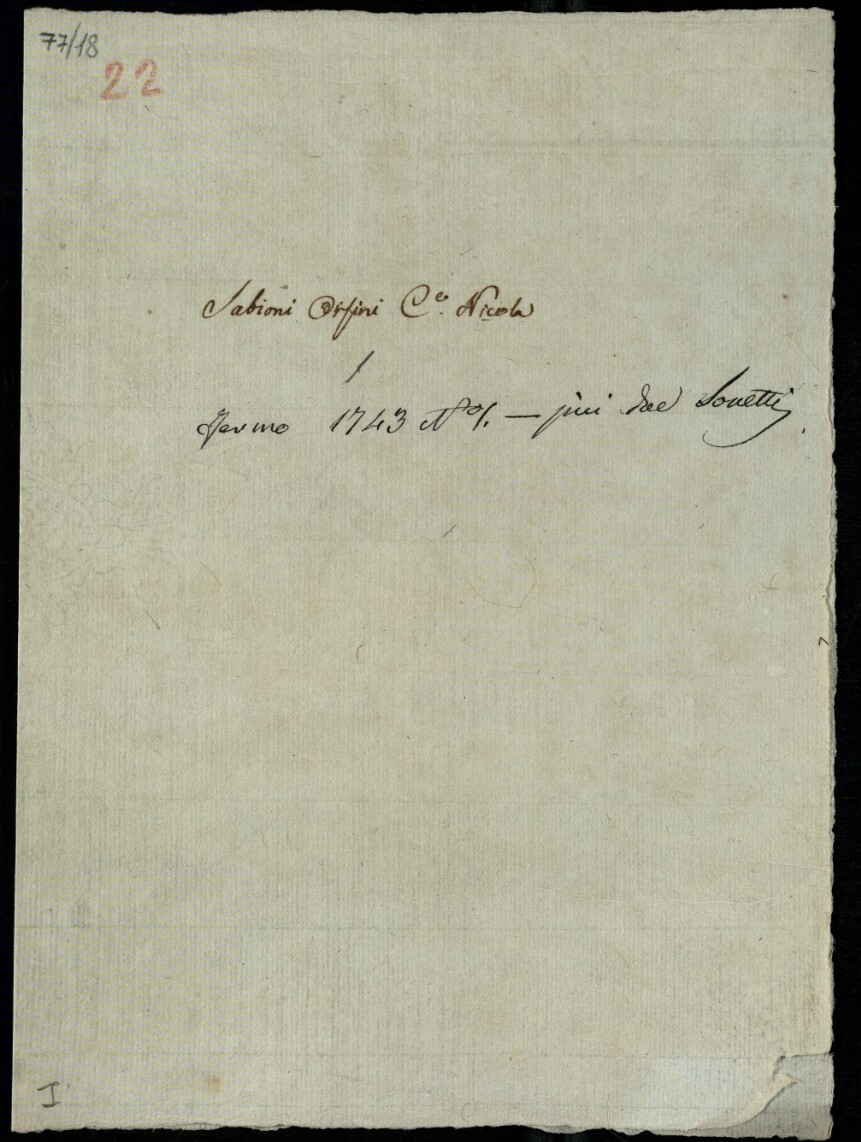 77/18
22
Sabioni Orsini C.e Nicola
Fermo 1743 N.o 1. — più due Sonetti
I